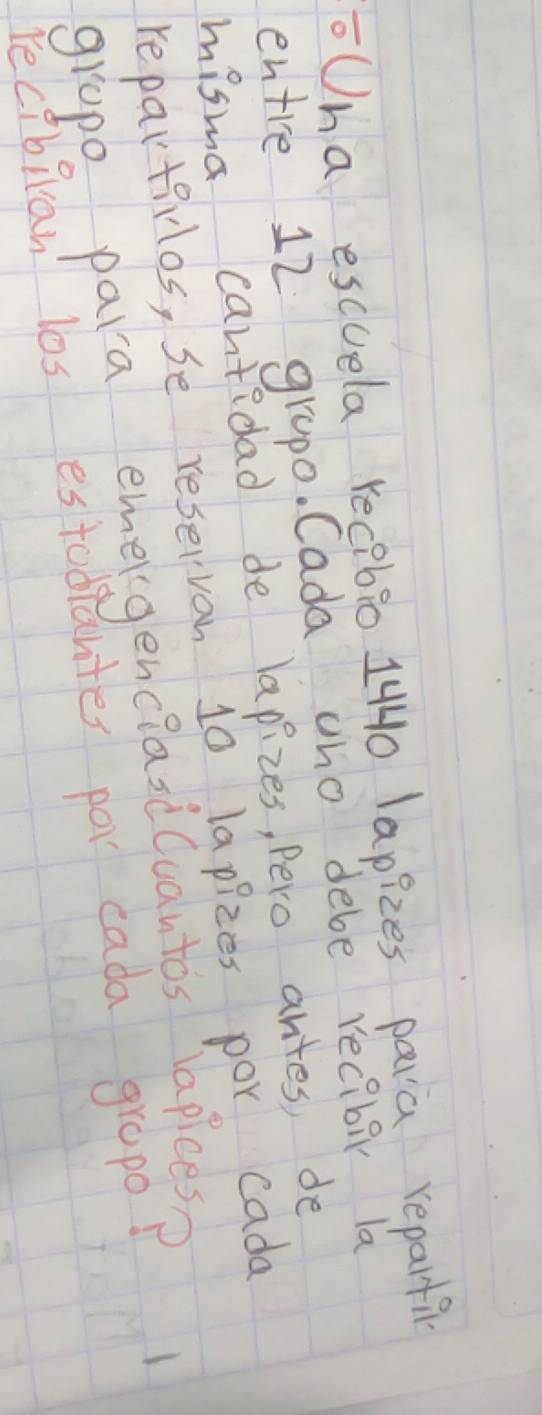 :-Una escuela recibio 1440 lapizes para repartir
entre 12 grupo. Cada uno debe recibir la
misma cantidad de lapizes, Pero antes, de
repartirlos, se reservan 10 lapizes por cada
grupo para emergencias ¿Cuantos lapices?
recibiran los estudiantes por cada grupo?